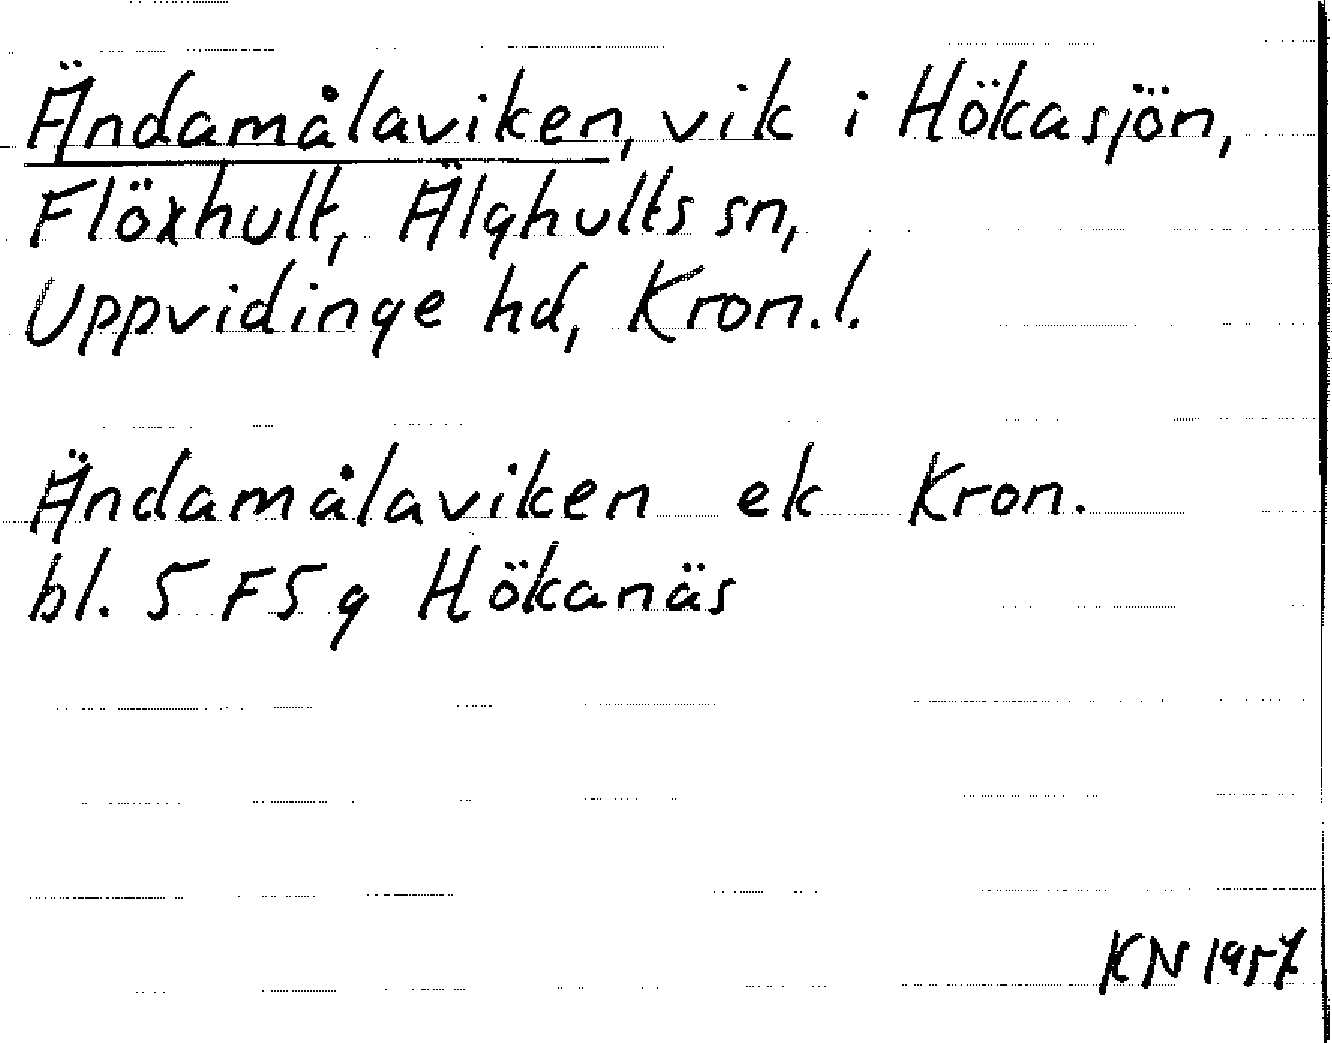 Ändamålaviken, vik i Hökasjön,
Flöxhult, Älghults sn,
Uppvidinge hd, Kron.l.
Ändamålaviken ek Kron.
bl. 5 F5g Hökanäs
KN 1957